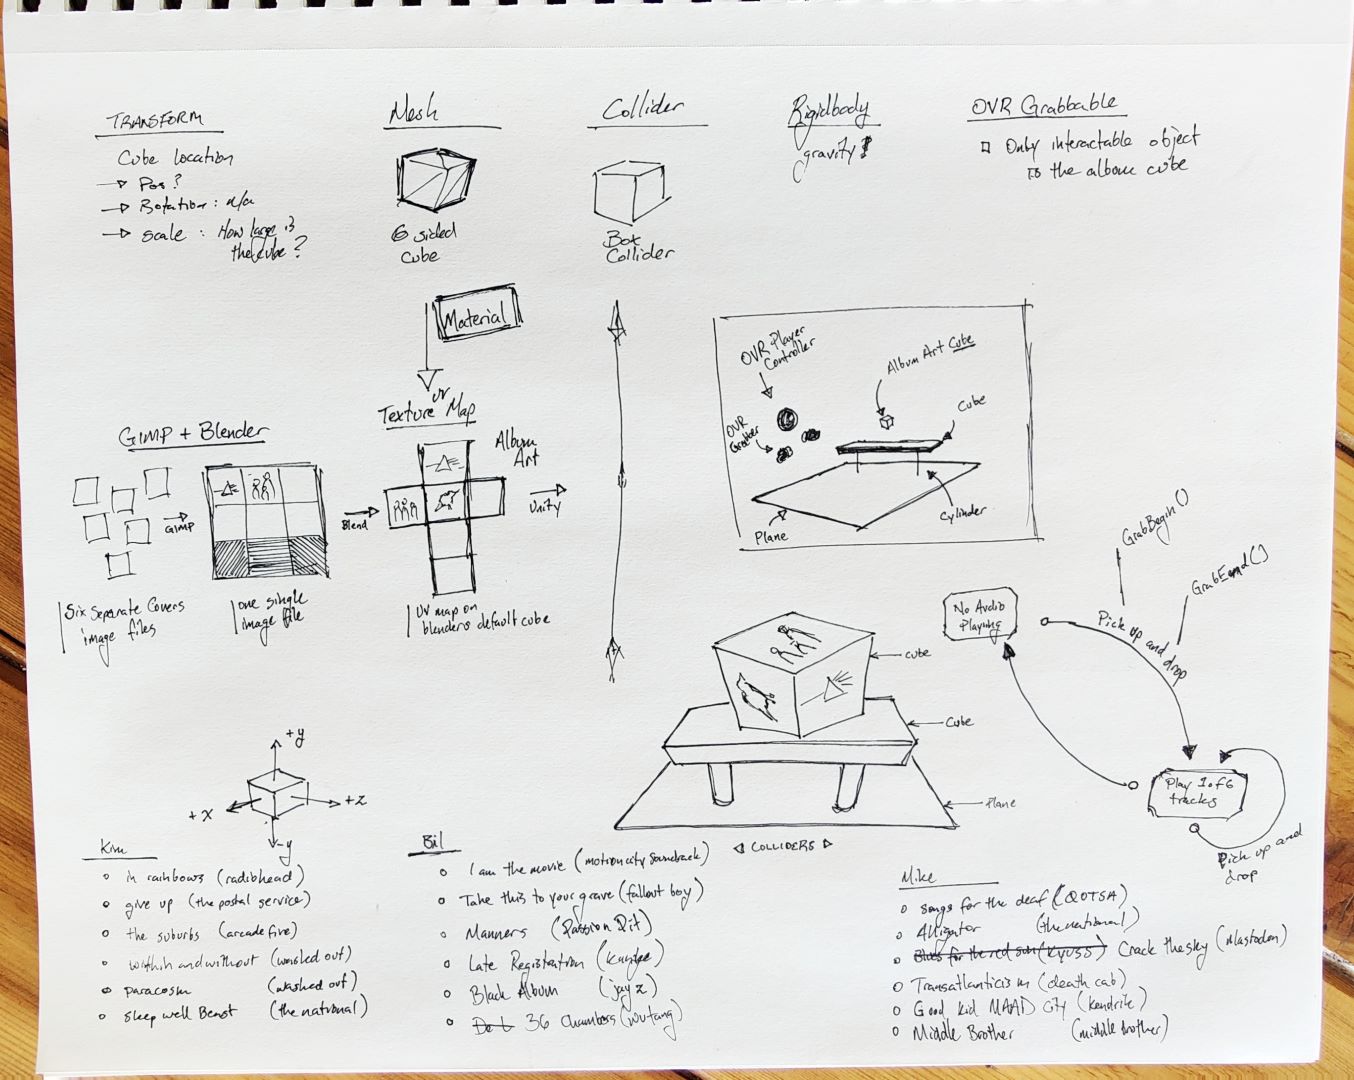 TRANSFORM
Cube location
→ Pos?
→ Rotation: n/a
→ Scale: How large is
the cube?
Mesh
6 sided
Cube
Collider
Box
Collider
Rigidbody
gravity!
OVR Grabbable
Only interactable object
the album cube
Material
UV
Texture Map
Album
Art
GIMP + Blender
GIMP
Blend
Unity
Six Separate Covers
image files
one single
image file
UV map on
blenders default cube
OVR Player
Controller
OVR
Grabber
Album Art Cube
Cube
Cylinder
Plane
GrabBegin()
GrabEnd()
No Audio
Playing
Pick up and drop
Play 1 of 6
tracks
Pick up and
drop
cube
Cube
Plane
◁ COLLIDERS ▷
+y
+x
+z
-y
Kim
in rainbows (radiohead)
give up (the postal service)
the suburbs (arcade fire)
within and without (washed out)
paracosm (washed out)
sleep well Beast (the national)
Bil
I am the movie (motion city soundtrack)
Take this to your grave (fallout boy)
Manners (Passion Pit)
Late Registration (Kanye)
Black Album (jay z)
36 Chambers (wutang)
Mike
songs for the deaf (QOTSA)
Alligator (the national)
Blues for the red sun (Kyuss) Crack the sky (Mastodon)
Transatlanticism (death cab)
Good kid MAAD City (kendrik)
Middle Brother (middle brother)